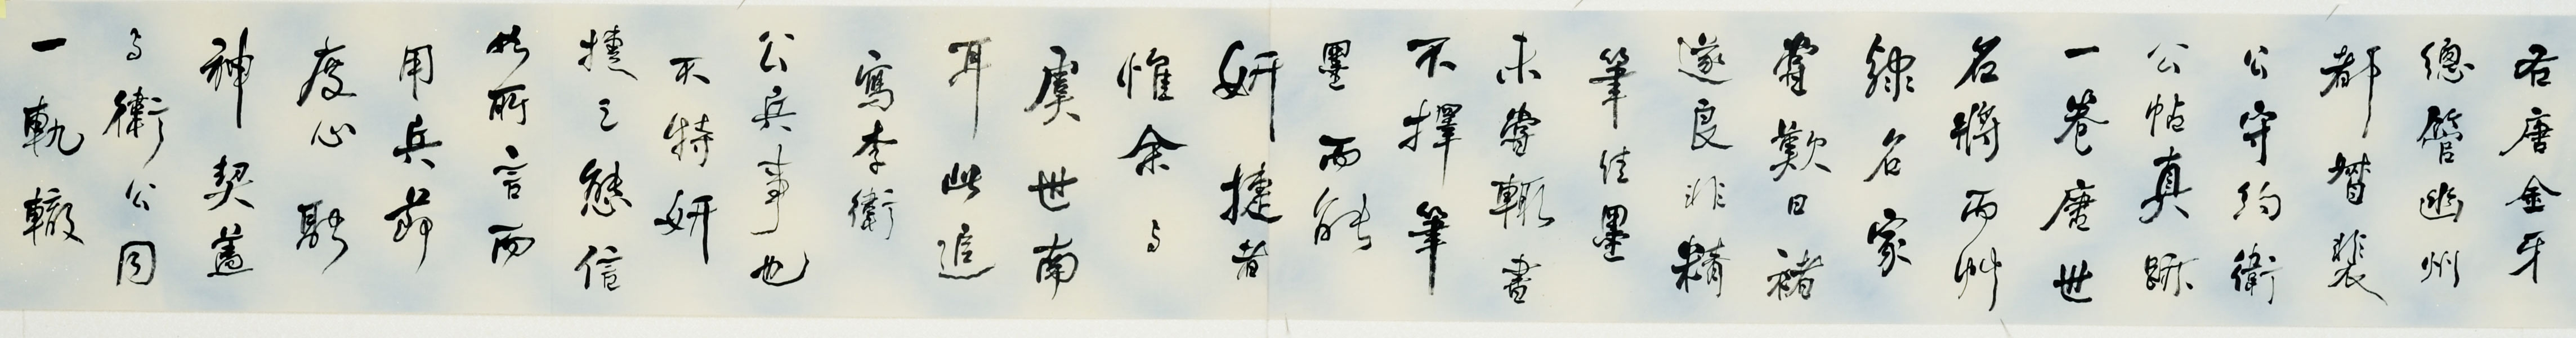 右唐金牙
總管幽州
都督裴
公守約衛
公帖真跡
一卷唐世
名將而艸
隸名家
嘗歎曰褚
遂良非精
筆佳墨
未嘗輒書
不擇筆
墨而能
妍捷者
惟余与
虞世南
耳此追
寫李衛
公兵事也
不特妍
捷之態信
如所言而
用兵節
度心融
神契蓋
与衛公同
一軌轍